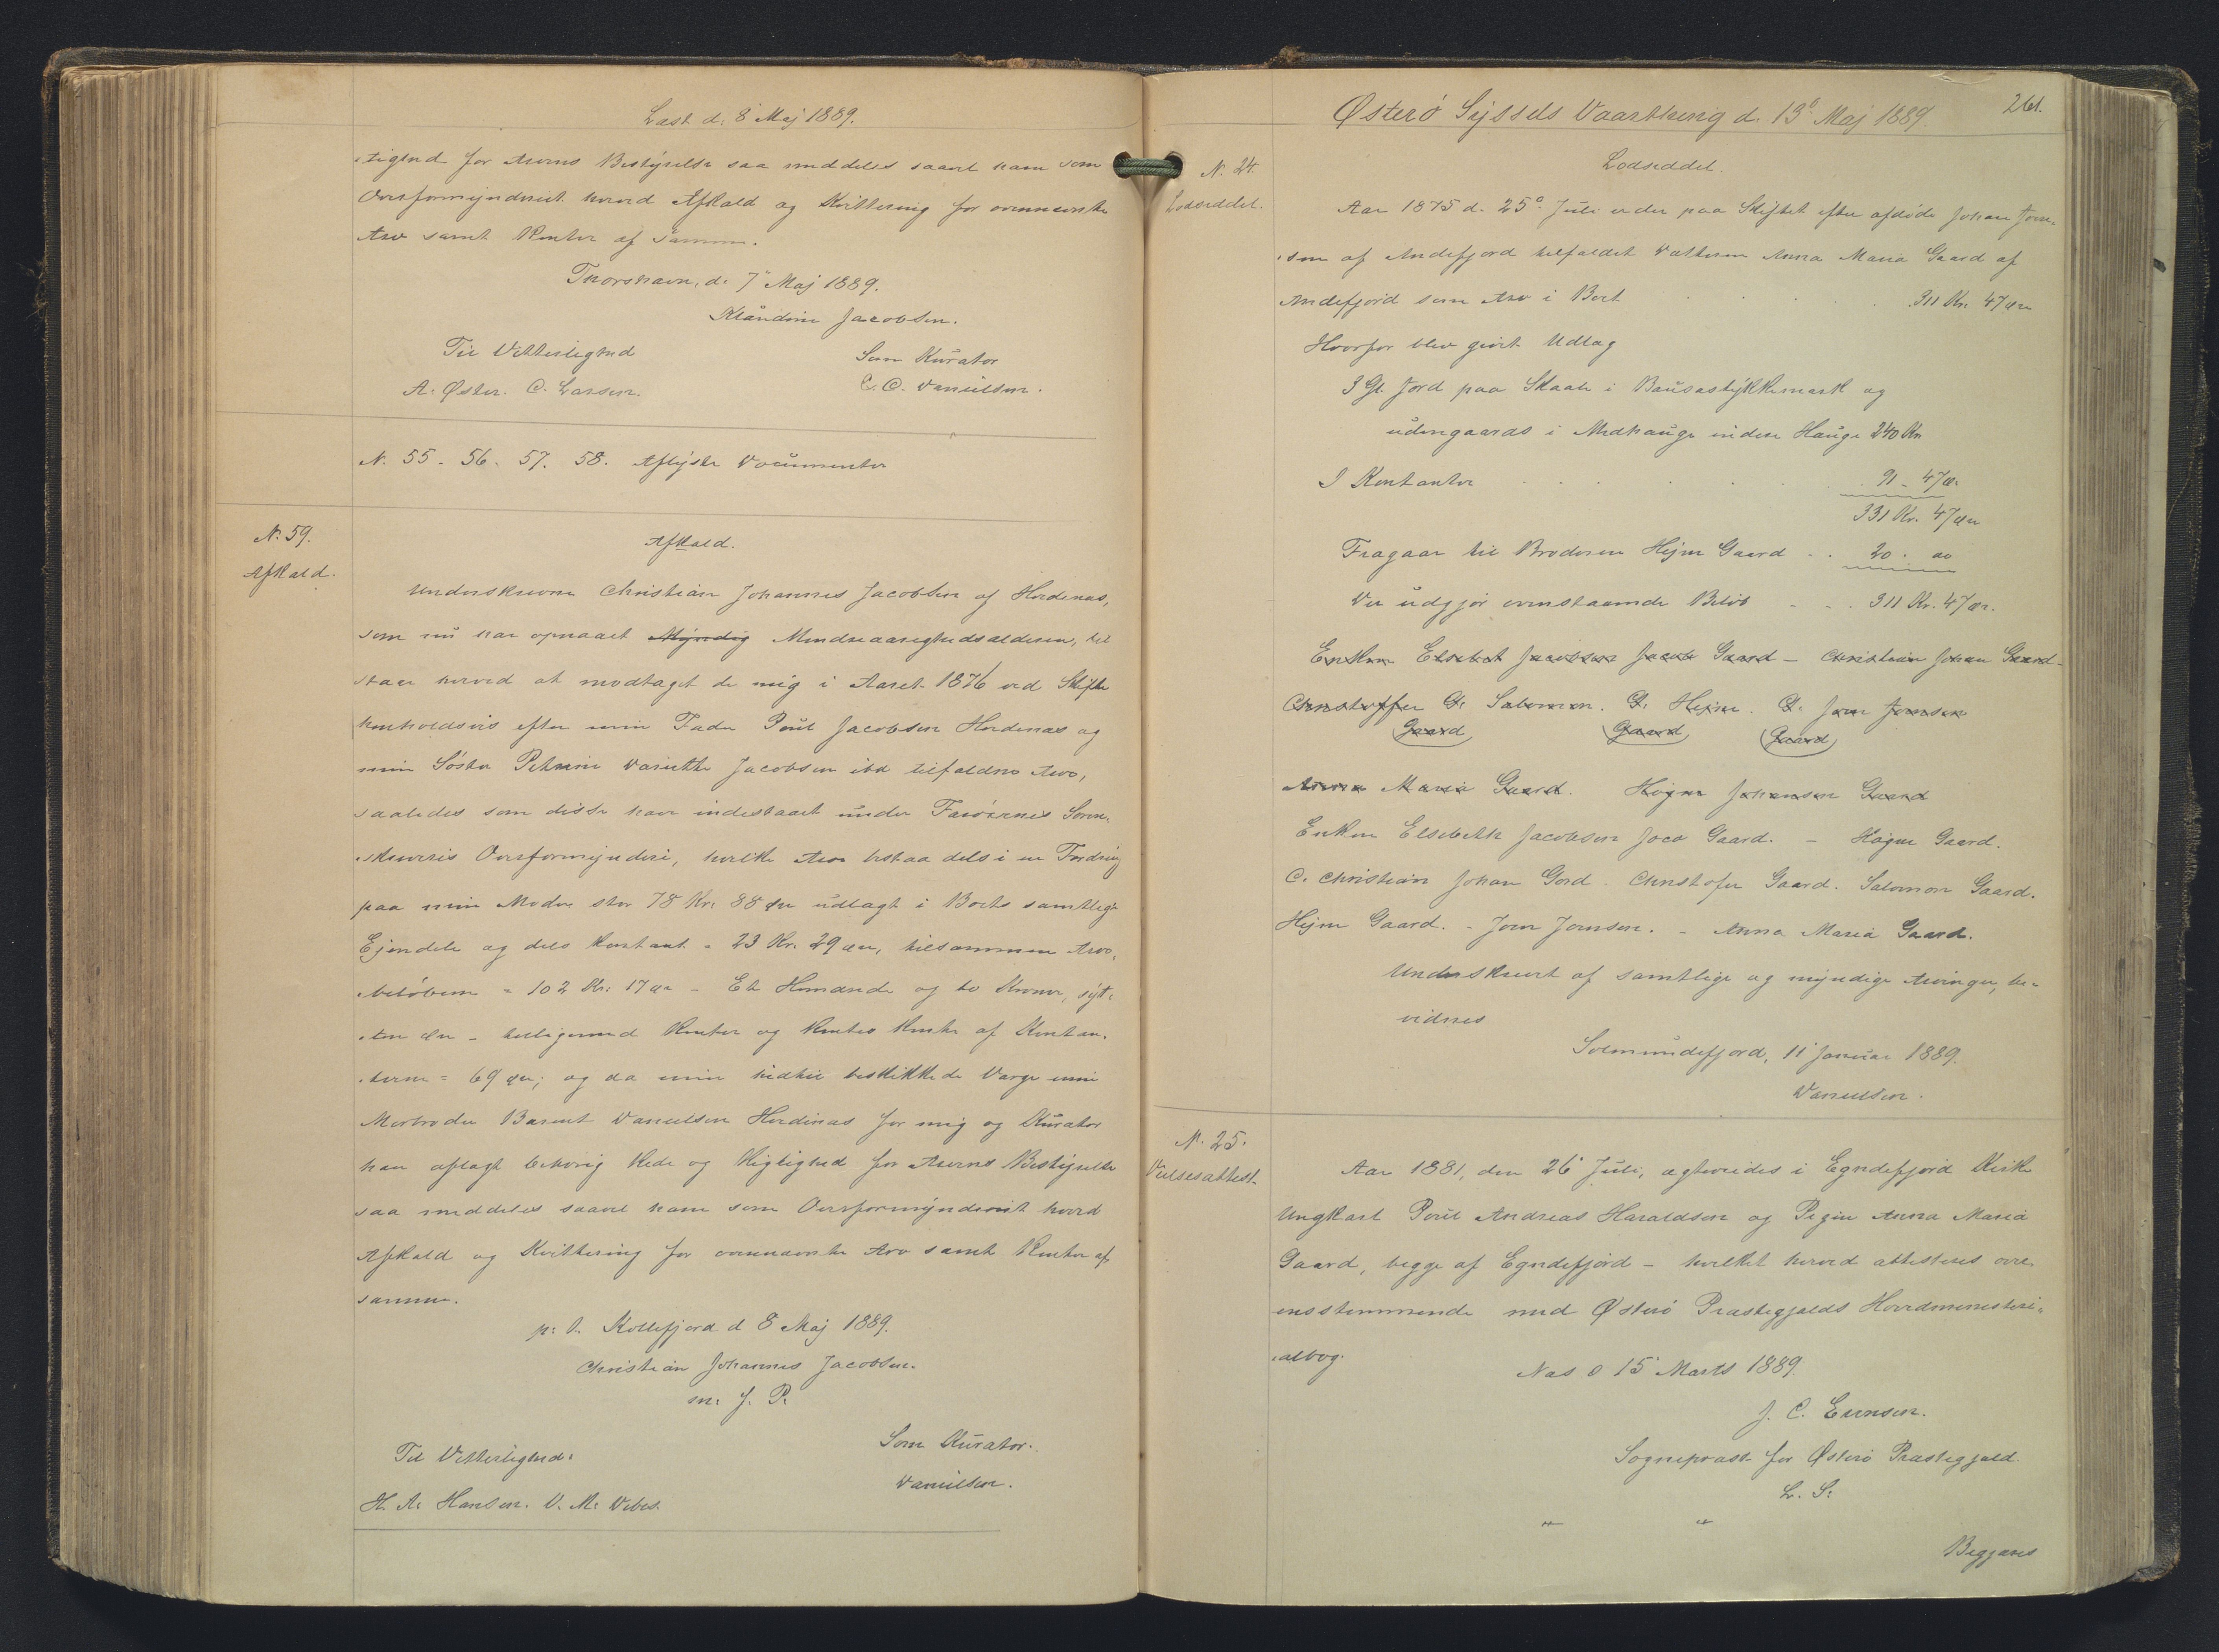 Læst d: 8 Maj 1889.
tighed for Arvens Bestyrelse saa meddeles saavel ham som
Overformynderiet herved Afkald og Kvittering for ovennævnte
Arv samt Renter af samme.
Thorshavn, d. 7 Maj 1889.
Klaudine Jacobsen.
Til Vitterlighed
Som Kurator
A. Øster. C. Larsen.
C. C. Danielsen.
N. 55 - 56 - 57. 58. Aflyste Documenter
N. 59.
Afkald.
Afkald.
Underskrevne Christian Johannes Jacobsen af Hoidenæs,
som nu har opnaaet Myndig Mindreaarighedsalderen, til
staar herved at modtaget de mig i Aaret 1876 ved Skifte
henholdsvis efter min Fader Poul Jacobsen Hoidenæs og
min Søster Petrine Danielle Jacobsen ibd tilfaldne Arv,
saaledes som disse have indestaaet under Færøernes Soren-
skriveris Overformynderi, hvilke Arve bestaa dels i en Fordring
paa min Moder stor 78 Kr: 88 Øre udlagt i Boets samtlige
Ejendele og dels Kontant = 23 Kr. 29 Øre, tilsammen Arve-
beløbene = 102 Kr: 17 Øre - Et Hundrede og to Kroner, sýt-
ten Øre - tilligemed Renter og Rentes Rente af Kontan-
terne = 69 Øre; og da min hidtil beskikkede Værge min
Morbroder Barent Danielsen Hoidenæs for mig og Kurator
har aflagt behørig Rede og Rigtighed for Arvens Bestyrelse
saa meddeles saavel ham som Overformynderiet hvervd
Afkald og Kvittering for ovennævnte Arv samt Renter af
samme.
p: t. Kollefjord d 8 Maj 1889.
Christian Johannes Jacobsen.
m. f. P.
Til Vitterlighed:
Som Kurator.
H. A. Hansen. D. M: Debes.
Danielsen.
Østerø Syssels Vaarthing d. 13d Maj 1889.
261.
N. 24.
Lodseddel.
Lodseddel.
Aar 1875 d. 25d Juli er der paa Skiftet efter afdøde Johan Joen-
sen af Andefjord tilfaldet Datteren Anna Maria Gaard af
Andefjord som Arv i Boet . . . . 311 Kr. 47 Øre
Hvorfor blev gjort Udlæg
3 Gl. Jord paa Skaale i Bausastykkemark og
udengaards i Midhauge inden Hauge 240 Kr
I Kontanter . . . . . 91 - 47 Ø:
331 Kr. 47 Øre
Fragaar til Broderen Hejne Gaard . . 20 . 00
Der udgjør ovenstaaende Beløb - - . 311 Kr. 47 Ør.
Enken Elsebet Jacobsen Jacob Gaard - Christian Johan Gaard -
Christoffer G. Salomon. G. Hejne. G. Joen Joensen
Gaard Gaard Gaard
Anna Maria Gaard. Høgne Johansen Gaard
Enken Elsebeth Jacobsen Joco Gaard. - Høgne Gaard.
C. Christian Johan Gord. Christofer Gaard. Salomon Gaard.
Hejne Gaard. - Joen Joensen. - Anna Maria Gaard.
Underskrevt af samtlige og myndige Arvinger, be-
vidnes
Solmundefjord, 11 Januar 1889.
Danielsen.
N. 25.
Vielsesattest.
Aar 1881, den 26 Juli, ægteviedes i Egndefjord Kirke
Ungkarl Poul Andreas Haraldsen og Pigen Anna Maria
Gaard, begge af Egndefjord - hvilket herved attesteres over-
ensstemmende med Østerø Præstegjælds Hovedministeri-
albog.
Næs d 15 Marts 1889.
J. C. Evensen.
Sognepræst for Østerø Præstegjæld.
L. S.
" "
Begjæres